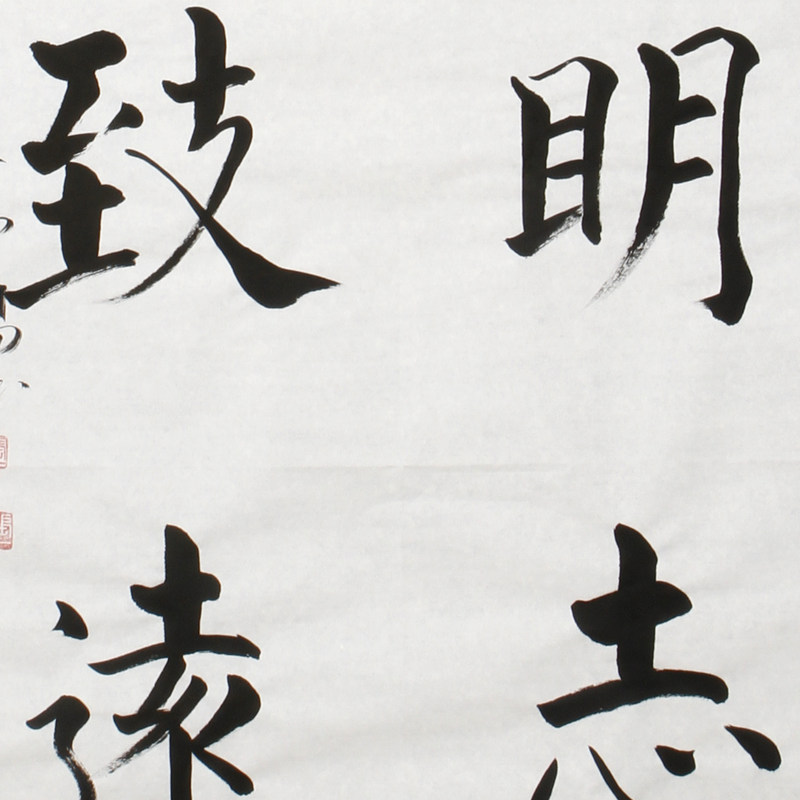 明志
致遠